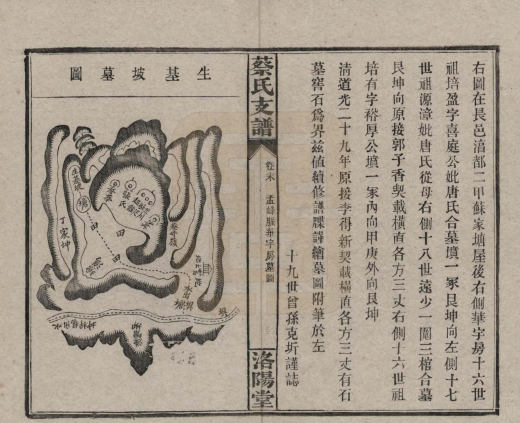 右圖在長邑涪都二甲蘇家塘屋後右側華字房十六世
祖培盈字喜庭公妣唐氏合墓墳一冢艮坤向左側十七
世祖源漳妣唐氏從母右側十八世遠少一圍三棺合墓
艮坤向原接郭子香契載橫直各方三丈右側十六世祖
培有字裕厚公墳一冢內向甲庚外向艮坤
清道光二十九年原接李得新契載橫直各方三丈有石
墓窖石為界茲值續修譜牒謹繪墓圖附筆於左
十九世曾孫克圻謹誌
蔡氏支譜
卷末
華字房墓圖
洛陽堂
生基坡墓圖
丁家坤